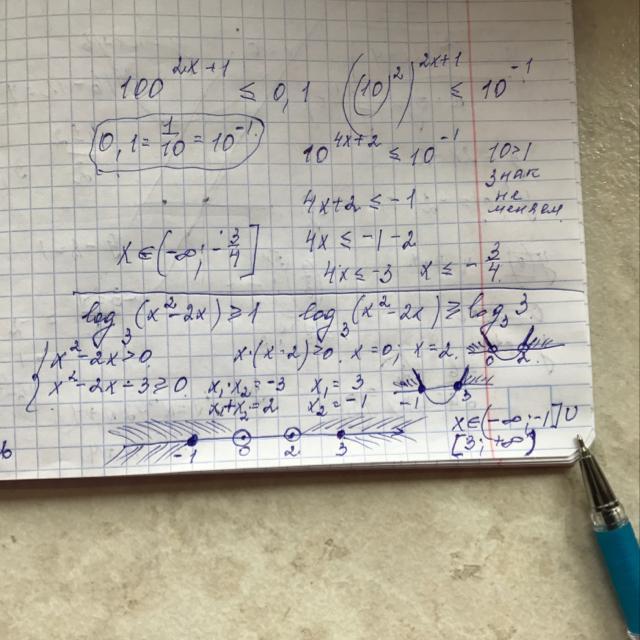 100^(2x+1) ≤ 0,1   ((10)^2)^(2x+1) ≤ 10^(-1)
0,1 = 1/10 = 10^(-1).   10^(4x+2) ≤ 10^(-1)   10>1
знак
не
меняем
4x+2 ≤ -1
x ∈ (-∞; -3/4]   4x ≤ -1-2
4x ≤ -3   x ≤ -3/4.
log_3 (x^2-2x) ≥ 1   log_3 (x^2-2x) ≥ log_3 3
{ x^2-2x>0.   x·(x-2)>0.   x=0; x=2.   0 2
x^2-2x-3 ≥ 0.   x_1·x_2=-3   x_1=3   -1 3
x_1+x_2=2   x_2=-1
x ∈ (-∞; -1] U
-1 0 2 3   [3; +∞)
ь